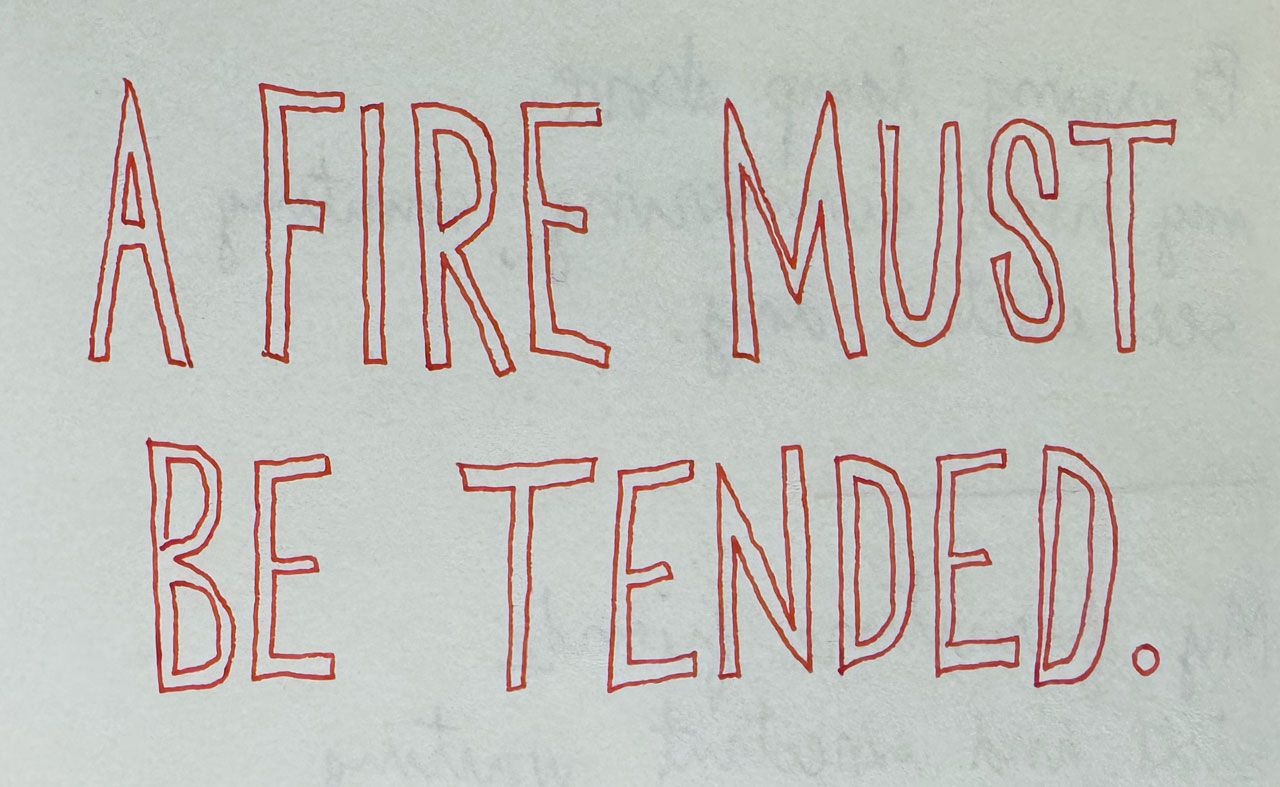 A FIRE MUST
BE TENDED.